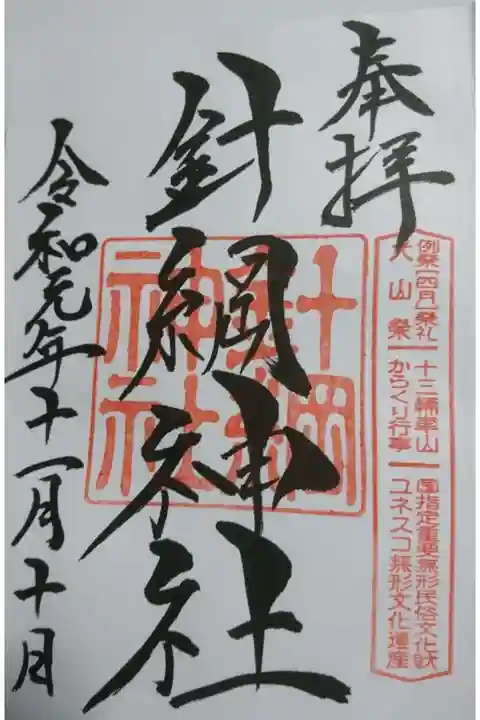 奉拝
例祭(四月)祭礼 十三輌車山 国指定重要無形民俗文化財
犬山祭 からくり行事 ユネスコ無形文化遺産
針綱神社
針綱神社
令和元年十一月十日